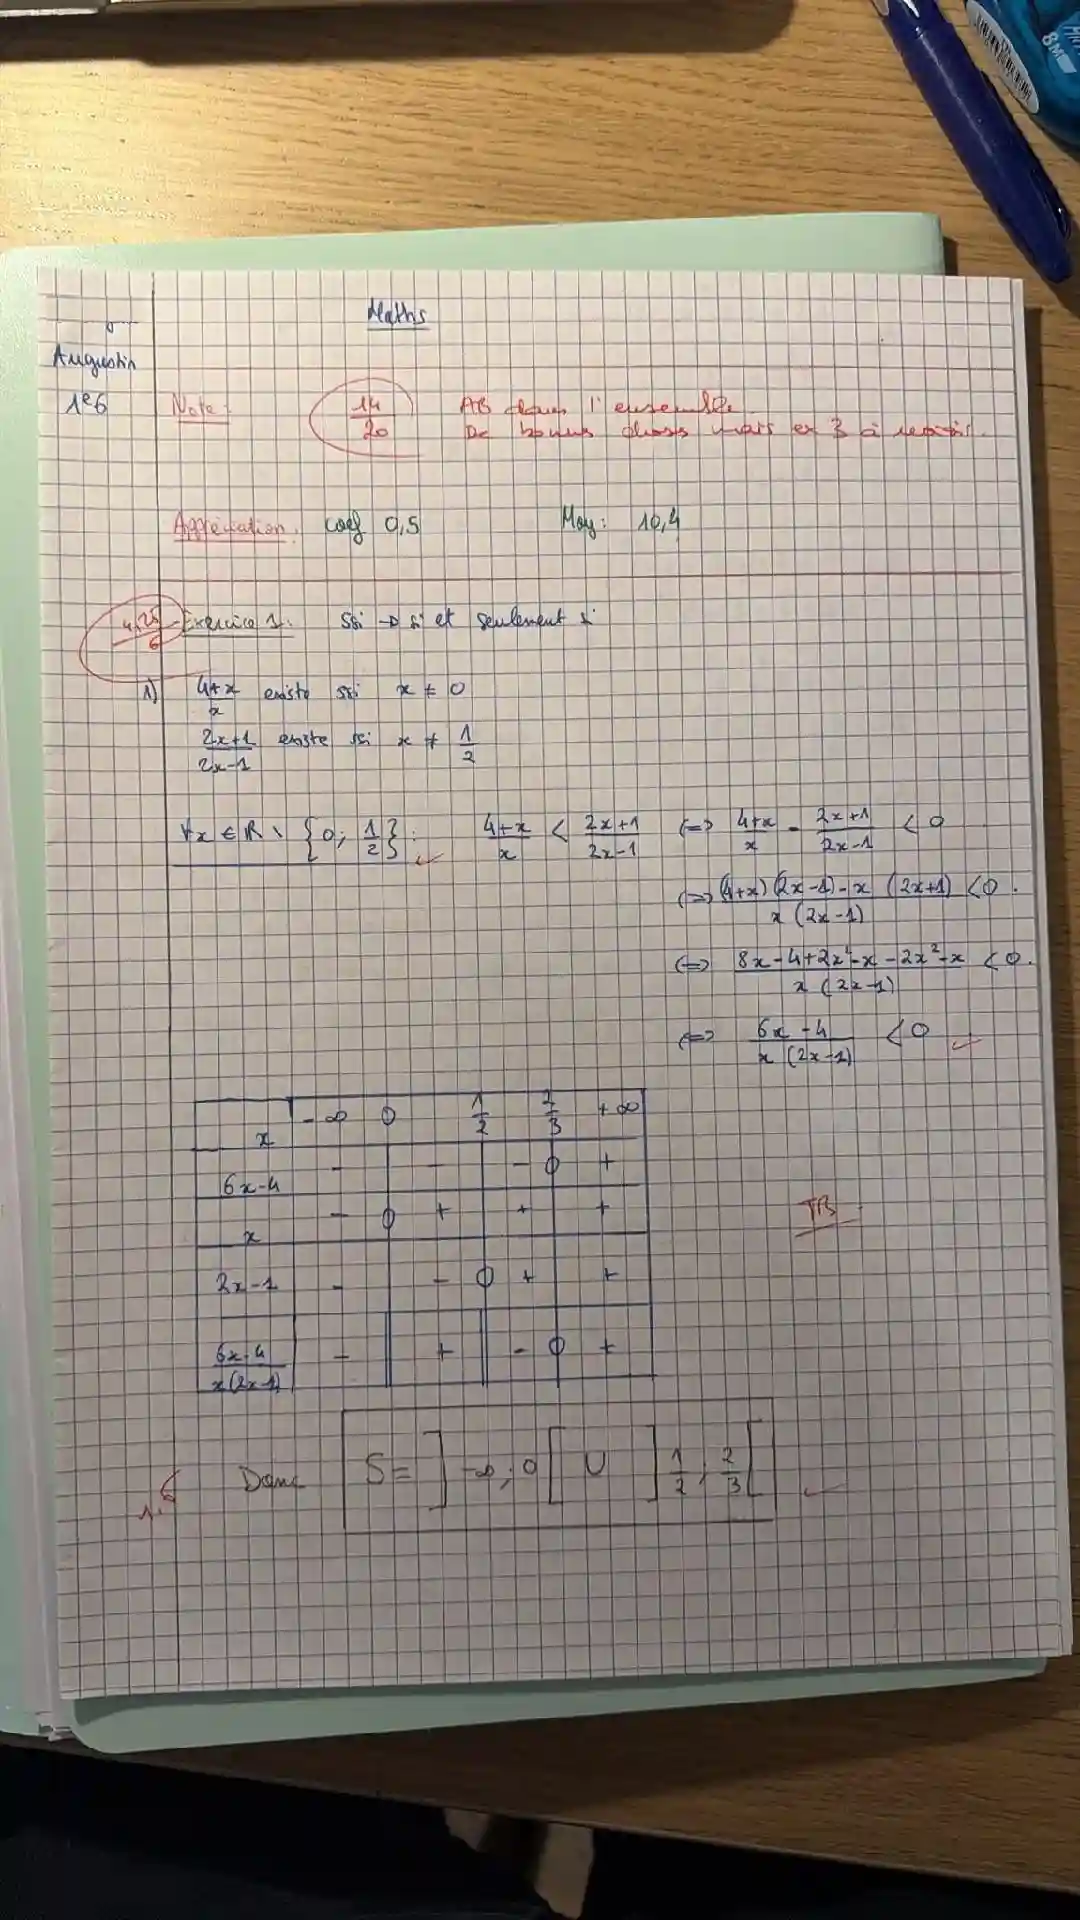 Maths
Augustin
1e6
Note :
14/20
AB dans l'ensemble.
De bonnes choses mais ex 3 à revoir.
Appréciation : coef 0,5
Moy : 10,4
4,25/6
Exercice 1 : ssi → si et seulement si
1) (4+x)/x existe ssi x ≠ 0
(2x+1)/(2x-1) existe ssi x ≠ 1/2
∀x ∈ ℝ \ {0; 1/2} : (4+x)/x < (2x+1)/(2x-1) <=> (4+x)/x - (2x+1)/(2x-1) < 0
<=> ((4+x)(2x-1)-x(2x+1))/(x(2x-1)) < 0.
<=> (8x-4+2x²-x-2x²-x)/(x(2x-1)) < 0.
<=> (6x-4)/(x(2x-1)) < 0
x -∞ 0 1/2 2/3 +∞
6x-4 - - - 0 +
x - 0 + + +
TB
2x-1 - - 0 + +
(6x-4)/(x(2x-1)) - || + || - 0 +
Donc S = ]-∞; 0[ U ]1/2; 2/3[